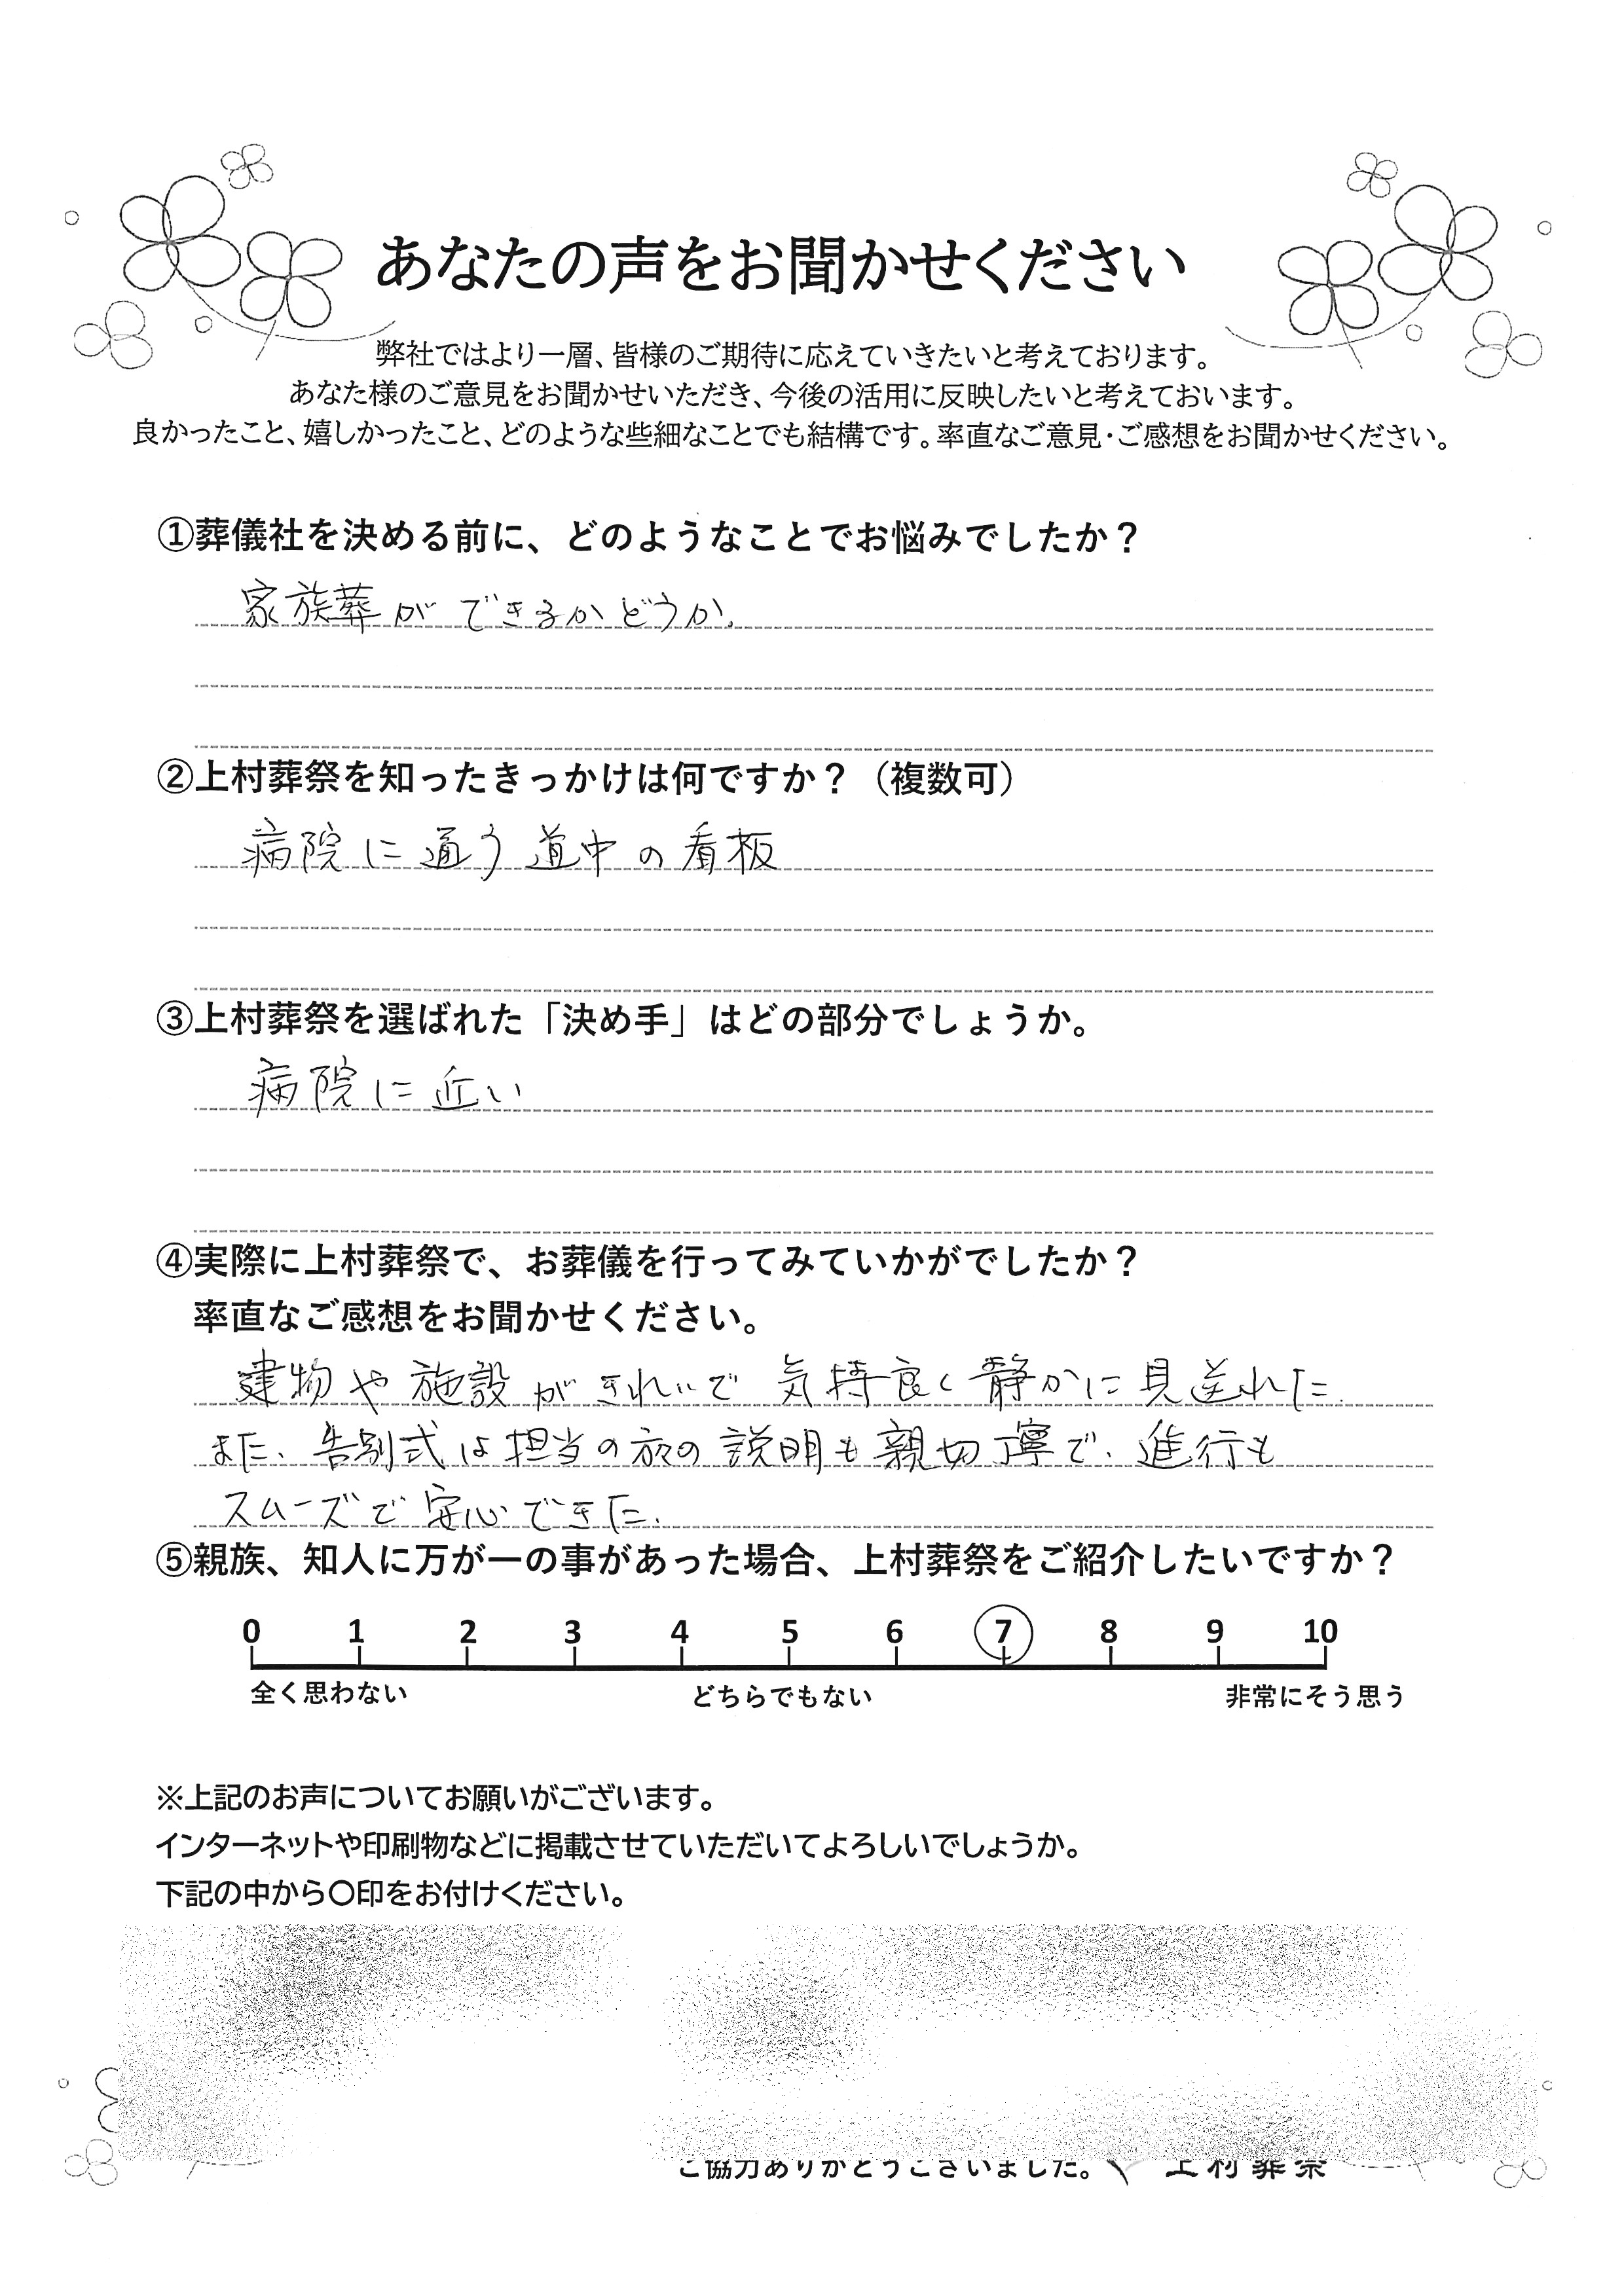 あなたの声をお聞かせください
弊社ではより一層、皆様のご期待に応えていきたいと考えております。
あなた様のご意見をお聞かせいただき、今後の活用に反映したいと考えておいます。
良かったこと、嬉しかったこと、どのような些細なことでも結構です。率直なご意見・ご感想をお聞かせください。
①葬儀社を決める前に、どのようなことでお悩みでしたか？
家族葬ができるかどうか。
②上村葬祭を知ったきっかけは何ですか？（複数可）
病院に通う道中の看板
③上村葬祭を選ばれた「決め手」はどの部分でしょうか。
病院に近い
④実際に上村葬祭で、お葬儀を行ってみていかがでしたか？
率直なご感想をお聞かせください。
建物や施設がきれいで気持良く静かに見送れた.
また、告別式は担当の方の説明も親切丁寧で、進行も
スムーズで安心できた.
⑤親族、知人に万が一の事があった場合、上村葬祭をご紹介したいですか？
0 1 2 3 4 5 6 7 8 9 10
全く思わない どちらでもない 非常にそう思う
※上記のお声についてお願いがございます。
インターネットや印刷物などに掲載させていただいてよろしいでしょうか。
下記の中から〇印をお付けください。
ご協力ありがとうございました。 上村葬祭